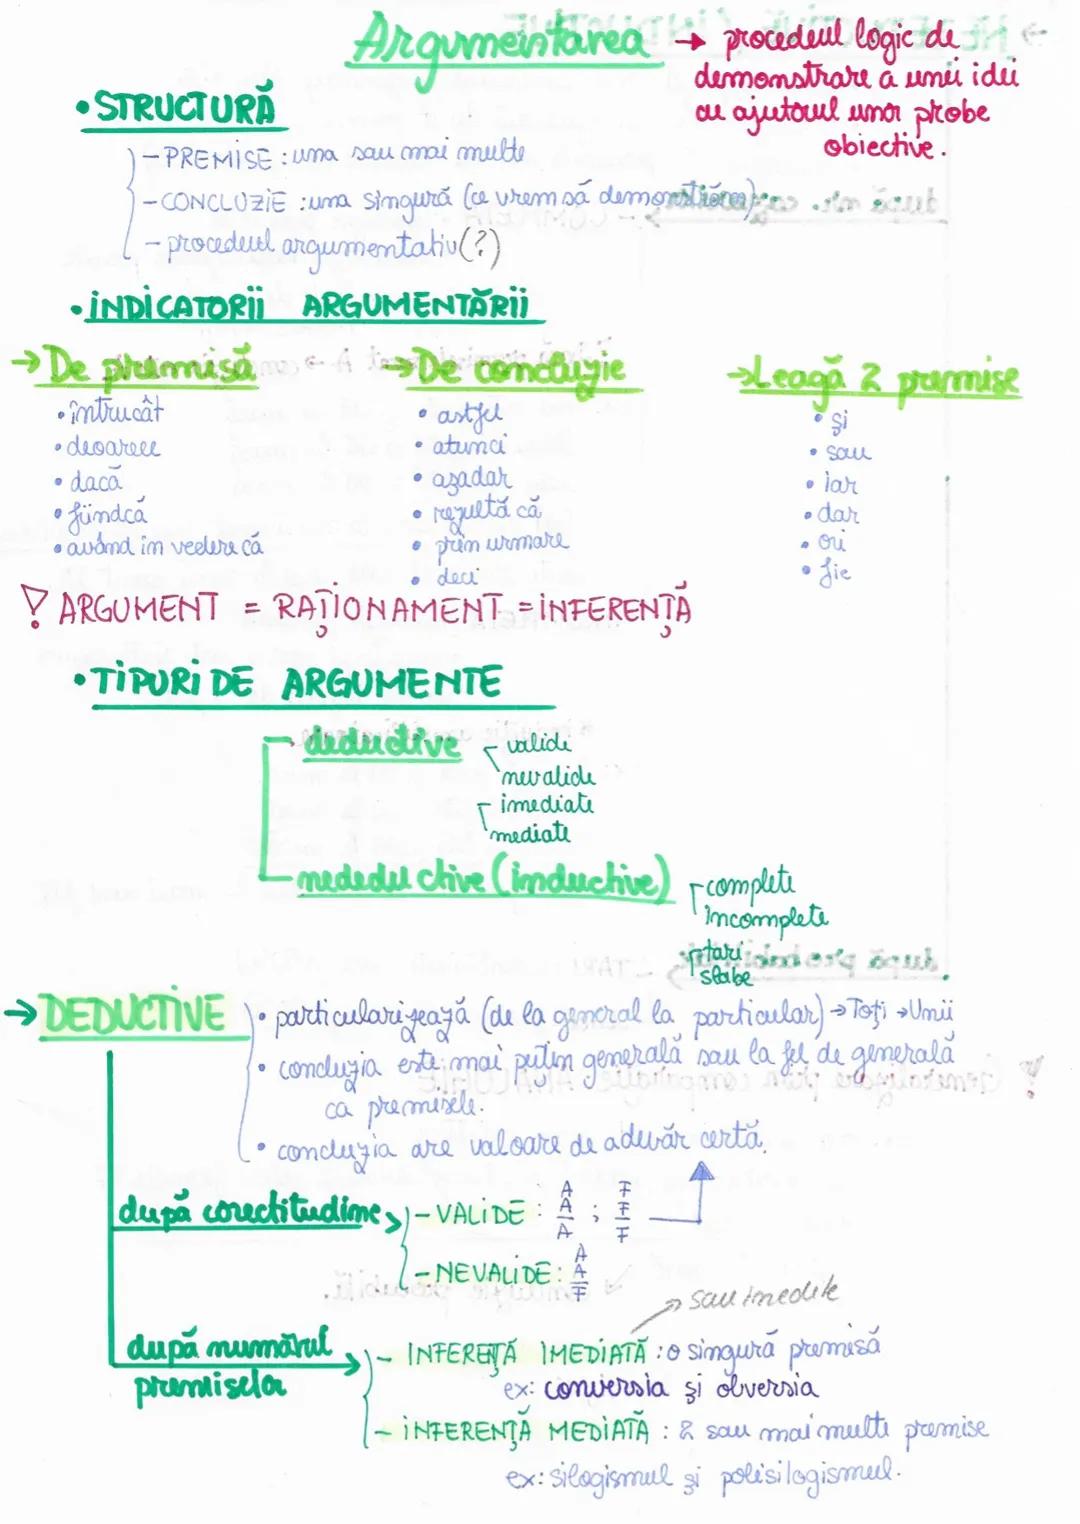 Argumentarea → procedeul logic de
demonstrare a unei idei
cu ajutorul unor probe
obiective.
• STRUCTURĂ
- PREMISE : una sau mai multe
- CONCLUZIE : una singură (ce vrem să demonstrăm)
- procedeul argumentativ (?)
• INDICATORII ARGUMENTĂRII
→ De premisă
• întrucât
• deoarece
• dacă
• fiindcă
• având în vedere că
→ De concluzie
• astfel
• atunci
• așadar
• rezultă că
• prin urmare
• deci
→ Leagă 2 premise
• și
• sau
• iar
• dar
• ori
• fie
! ARGUMENT = RAȚIONAMENT = INFERENȚĂ
• TIPURI DE ARGUMENTE
deductive
valide
nevalide
imediate
mediate
nedeductive (inductive)
complete
incomplete
tari
slabe
→ DEDUCTIVE
• particularizează (de la general la particular) → Toți → Unii
• concluzia este mai puțin generală sau la fel de generală
ca premisele.
• concluzia are valoare de adevăr certă.
după corectitudine
- VALIDE : A A A ; F F F
- NEVALIDE : A A F
după numărul
premiselor
→ sau imedite
- INFEREȚĂ IMEDIATĂ : o singură premisă
ex: conversia și obversia
- INFERENȚĂ MEDIATĂ : 2 sau mai multe premise
ex: silogismul și polisilogismul.